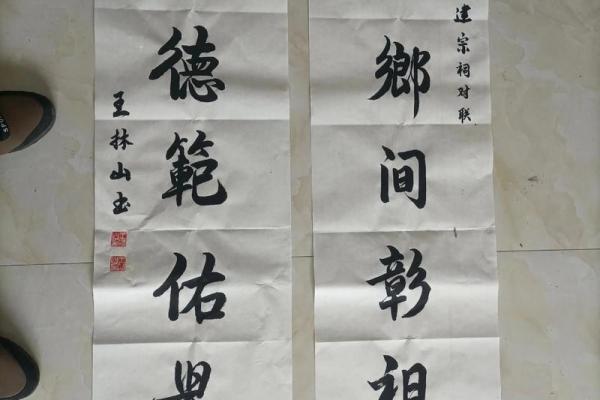 建宗祠对联
鄉间彰祖
德範佑
王林山书